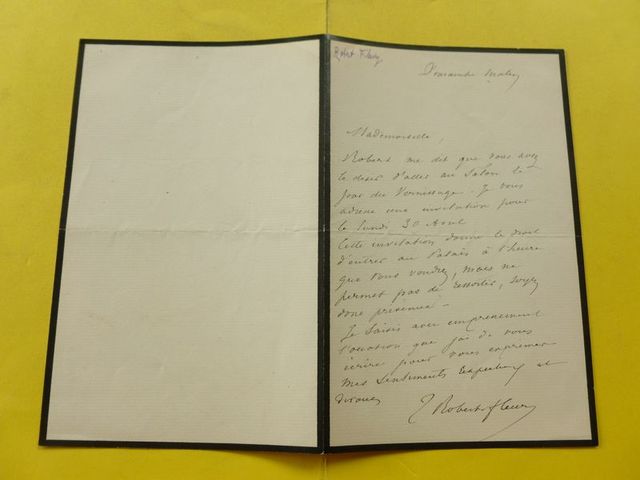 Robert Fleury
Dimanche Matin
Mademoiselle,
Robert me dit que vous avez
le désir d'aller au Salon le
Jour du Vernissage. Je vous
adresse une invitation pour
le lundi 30 Avril
Cette invitation donne le droit
d'entrer au Palais à l'heure
que vous voudrez, mais ne
permet pas de ressortir, soyez
donc prévenue.
Je saisis avec empressement
l'occasion que j'ai de vous
écrire pour vous exprimer
mes sentiments respectueux et
dévoués
T Robert-Fleury